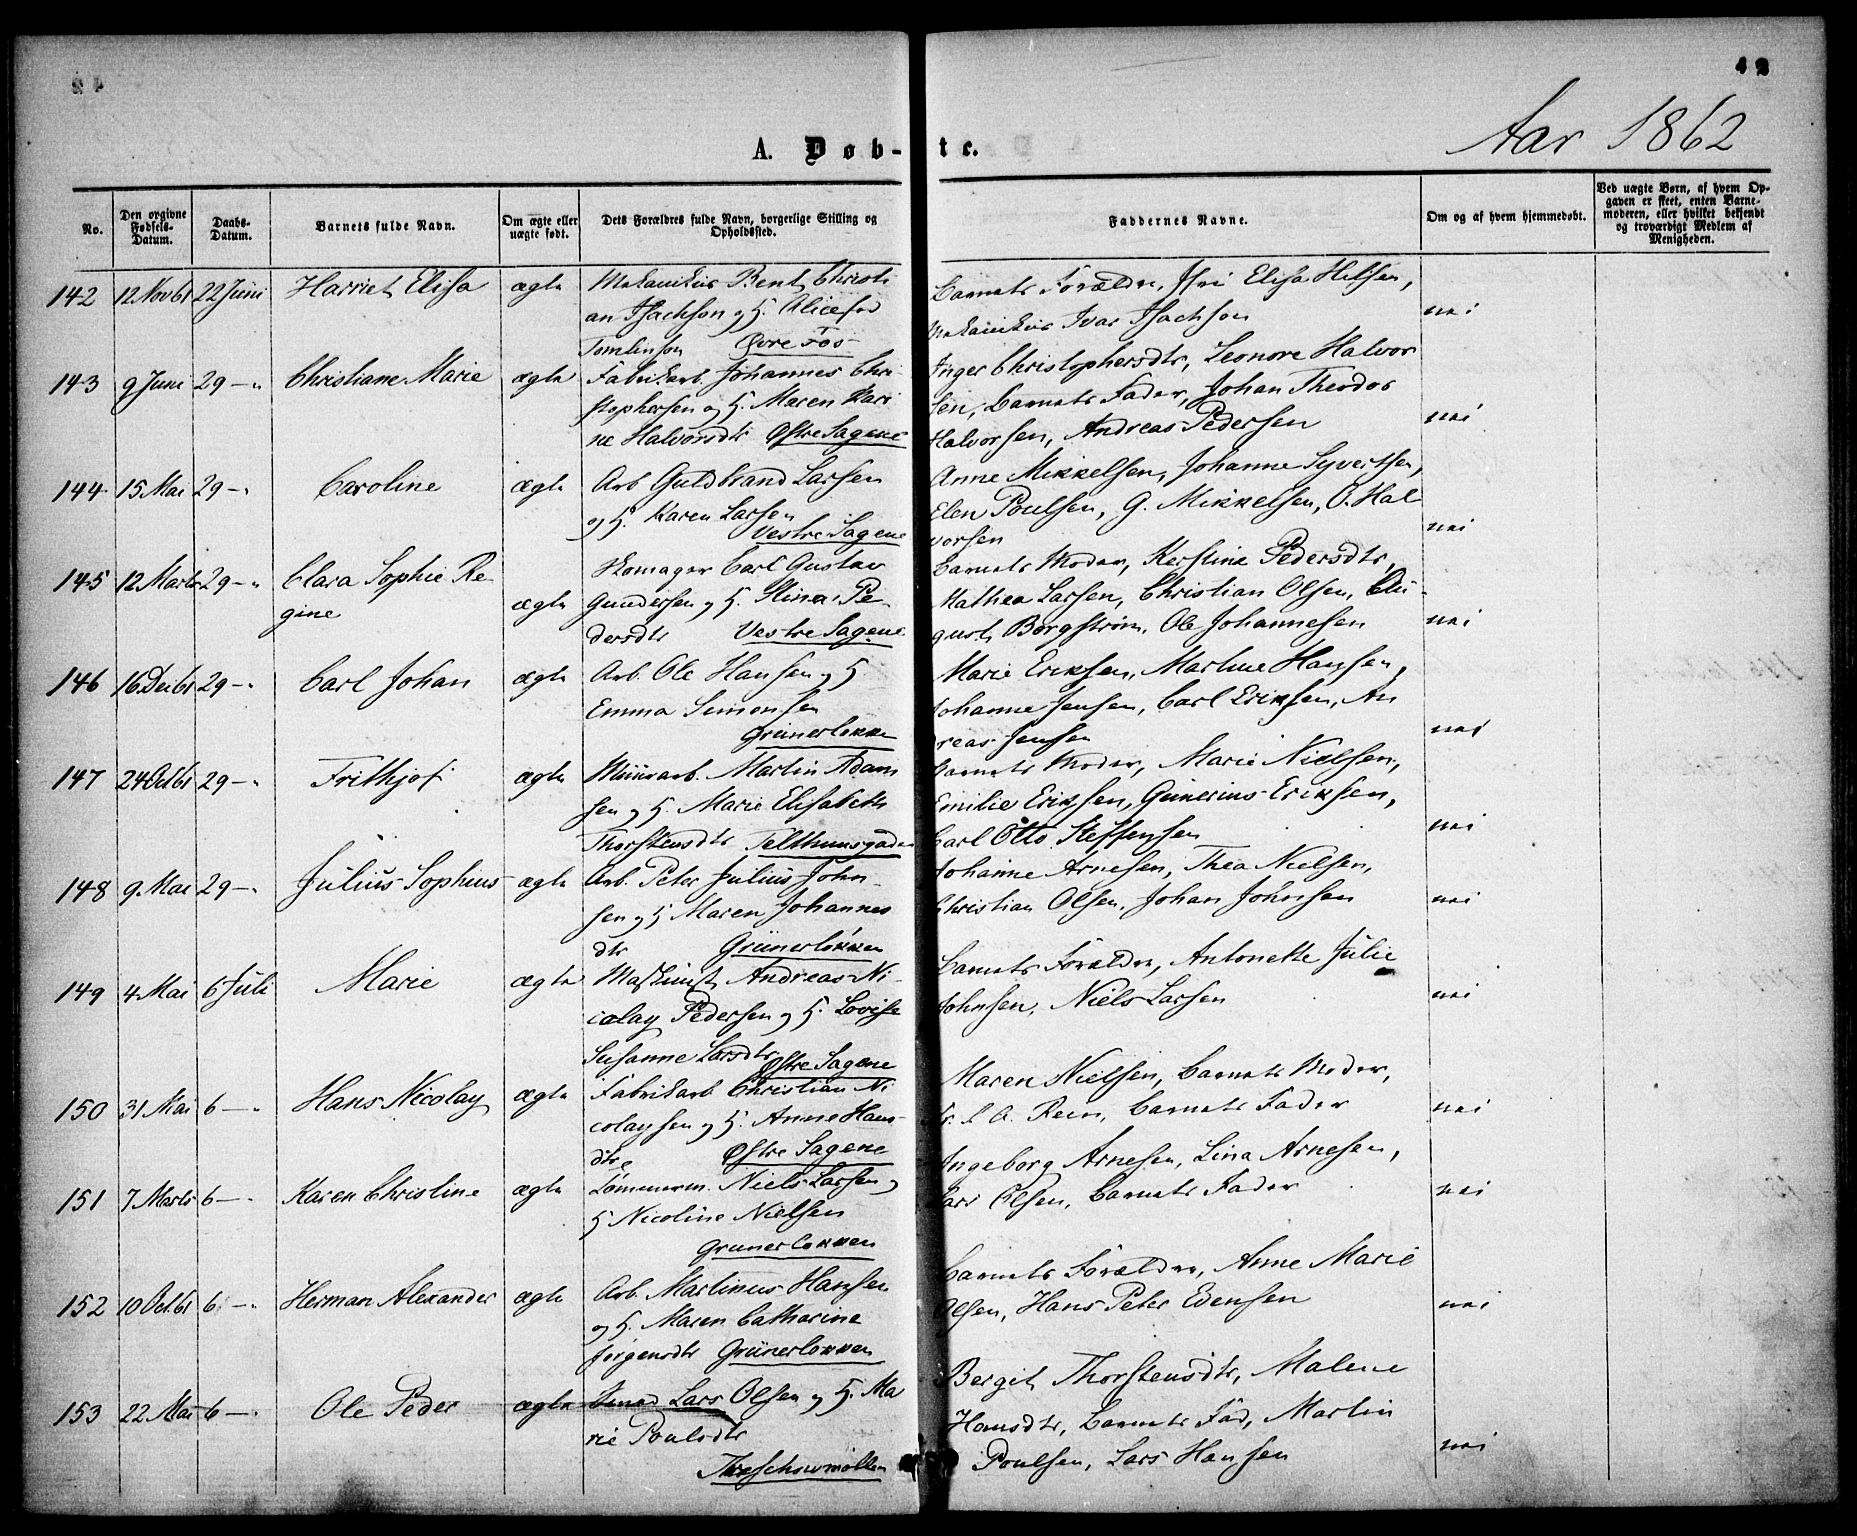 42
Aar 1862
A. Døb-te.
No.
Den opgivne Fødsels-Datum.
Daabs-Datum.
Barnets fulde Navn.
Om ægte eller uægte født.
Dets Forældres fulde Navn, borgerlige Stilling og Opholdssted.
Faddernes Navne.
Om og af hvem hjemmedøbt.
Ved uægte Børn, af hvem Op-
gaven er skeet, enten Barne-
moderen, eller hvilket bekjendt
og troværdigt Medlem af
Menigheden.
142 12 Nov 61 22 Juni Harriet Elisa ægte Mekanikus Bent Christi
an Isachson og H. Alice fød
Tomlinson Øvre Fos
Barnets Forældre, Elisa Hilsen,
Mekanikus Ivar Isachson nei
143 9 Juni 29 -" Christiane Marie ægte Fabrikarb. Johannes Chri-
stophersen og H. Maren Kari
ne Halvorsdtr Østre Sagene
Inger Christophersdtr, Leonore Halvor
sen, Barnets Fader, Johan Theodor
Halvorsen, Andreas Pedersen nei
144 15 Mai 29 -" Caroline ægte Arb Guldbrand Larsen
og H. Karen Larsen
Vestre Sagene
Anne Mikkelsen, Johanne Syvertsen,
Elen Poulsen, G. Mikkelsen, O. Hal
vorsen nei
145 12 Marts 29 -" Clara Sophie Re-
gine ægte Skomager Carl Gustav
Gundersen og H. Stina Pe-
dersdtr Vestre Sagene
Barnets Moder, Kerstina Pedersdtr,
Mathea Larsen, Christian Olsen, Au-
gust Borgstrøm, Ole Johannesen nei
146 16 Dec 61 29 -" Carl Johan ægte Arb. Ole Hansen og H
Emma Simonsen
Grünerløkken
Marie Eriksen, Martine Hansen,
Johanne Jensen, Carl Eriksen, An
dreas Jensen nei
147 24 Oct 61 29 -" Frithjof ægte Muurarb. Martin Adam
sen og H. Marie Elisabeth
Thorstensdtr Telthuusgaden
Barnets Moder, Marie Nielsen,
Emilie Eriksen, Gunerius Eriksen,
Carl Otto Steffensen nei
148 9 Mai 29 -" Julius Sophus ægte Arb. Peter Julius John-
sen og H Maren Johannes
dtr Grünerløkken
Johanne Arnesen, Thea Nielsen,
Christian Olsen, Johan Johnsen nei
149 4 Mai 6 Juli Marie ægte Maskinist Andreas Ni-
colay Pedersen og H. Lovise
Susanne Larsdtr Østre Sagene
Barnets Forældre, Antonette Julie
Johnsen, Niels Larsen nei
150 31 Mai 6 -" Hans Nicolay ægte Fabrikarb Christian Ni
colaysen og H. Anne Hans-
dtr Østre Sagene
Maren Nielsen, Barnets Moder,
A. Reen, Barnets Fader nei
151 7 Marts 6 -" Karen Christine ægte Tømmerm. Niels Larsen og
H Nicoline Nielsen
Grünerløkken
Ingeborg Arnesen, Lina Arnesen,
Lars Olsen, Barnets Fader nei
152 10 Oct. 61 6 -" Herman Alexander ægte Arb. Martinus Hansen
og H. Maren Catharine
Jørgensdtr Grünerløkken
Barnets Forældre, Anne Marie
Olsen, Hans Peter Evensen nei
153 22 Mai 6 -" Ole Peder ægte Smed Lars Olsen og H. Ma
rie Poulsdtr
Threschowmøllen
Bergit Thorstensdtr, Malene
Hansdtr, Barnets Fad, Martin
Poulsen, Lars Hansen nei